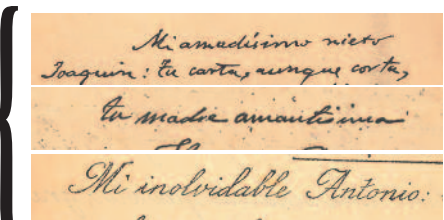 Mi amadísimo nieto
Joaquin: tu carta, aunque corta,
tu madre amantísima
Mi inolvidable Antonio: